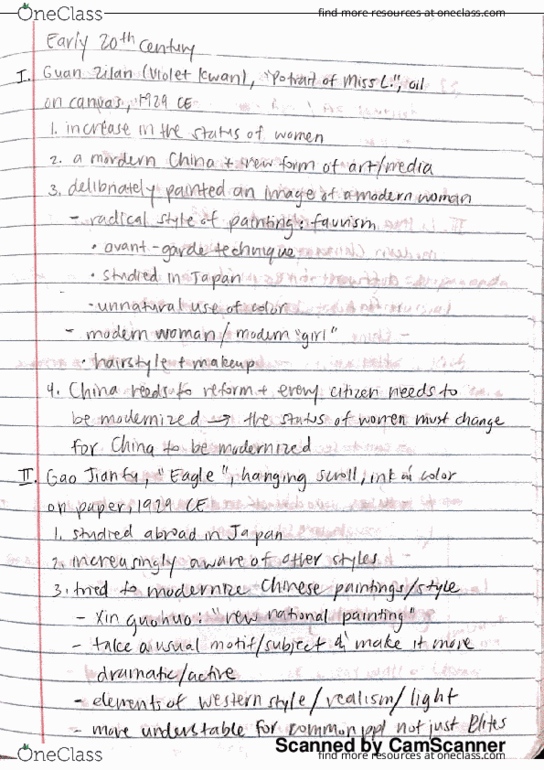 OneClass
find more resources at oneclass.com
Early 20th Century
I. Guan Zilan (Violet Kwan), "Potrait of Miss L.", oil
on canvas, 1929 CE
1. increase in the status of women
2. a mordern China + new form of art/media
3. delibriately painted an image of a modern woman
- radical style of painting: fauvism
• avant-garde technique
• studied in Japan
• unnatural use of color
- modern woman / modern "girl"
• hairstyle + makeup
4. China needs to reform + every citizen needs to
be modernized → the status of women must change
for China to be modernized
II. Gao Jianfu, "Eagle", hanging scroll, ink & color
on paper, 1929 CE
1. studied abroad in Japan
2. increasingly aware of other styles
3. tried to modernize Chinese paintings/style
- Xin guohuo: "new national painting"
- take a usual motif/subject & make it more
dramatic/active
- elements of western style/realism/light
- more understable for common ppl not just Elites
Scanned by CamScanner
OneClass
find more resources at oneclass.com